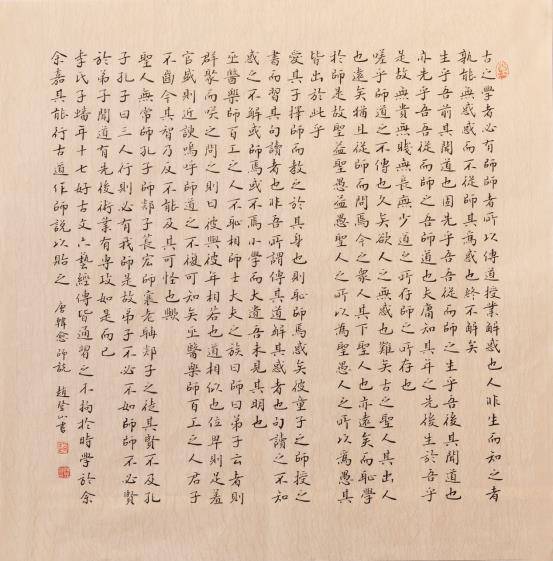 古之學者必有師師者所以傳道授業解惑也人非生而知之者
孰能無惑惑而不從師其爲惑也終不解矣
生乎吾前其聞道也固先乎吾吾從而師之生乎吾後其聞道也
亦先乎吾吾從而師之吾師道也夫庸知其年之先後生於吾乎
是故無貴無賤無長無少道之所存師之所存也
嗟乎師道之不傳也久矣欲人之無惑也難矣古之聖人其出人
也遠矣猶且從師而問焉今之衆人其下聖人也亦遠矣而恥學
於師是故聖益聖愚益愚聖人之所以爲聖愚人之所以爲愚其
皆出於此乎
愛其子擇師而教之於其身也則恥師焉惑矣彼童子之師授之
書而習其句讀者也非吾所謂傳其道解其惑者也句讀之不知
惑之不解或師焉或不焉小學而大遺吾未見其明也
巫醫樂師百工之人不恥相師士大夫之族曰師曰弟子云者則
群聚而咲之問之則曰彼與彼年相若也道相似也位卑則足羞
官盛則近諛嗚呼師道之不復可知矣巫醫樂師百工之人君子
不齒今其智乃反不能及其可怪也歟
聖人無常師孔子師郯子萇宏師襄老聃郯子之徒其賢不及孔
子孔子曰三人行則必有我師是故弟子不必不如師師不必賢
於弟子聞道有先後術業有專攻如是而已
李氏子蟠年十七好古文六藝經傳皆通習之不拘於時學於余
余嘉其能行古道作師說以貽之 唐韓愈師說 趙登山書